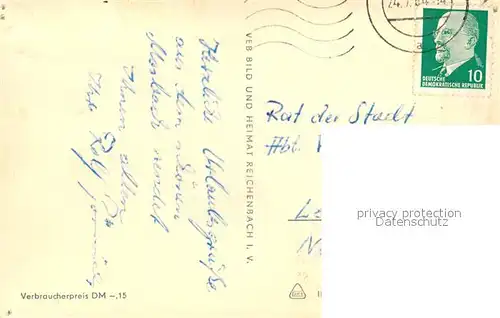 Herzliche Urlaubsgrüße
aus dem schönen
sendet
Ihnen allen
Ihre
VEB BILD UND HEIMAT REICHENBACH I. V.
24.7.
10
DEUTSCHE
DEMOKRATISCHE REPUBLIK
Rat der Stadt
Abt.
privacy protection
Ansichtskarten-Center.de
Verbraucherpreis DM –,15